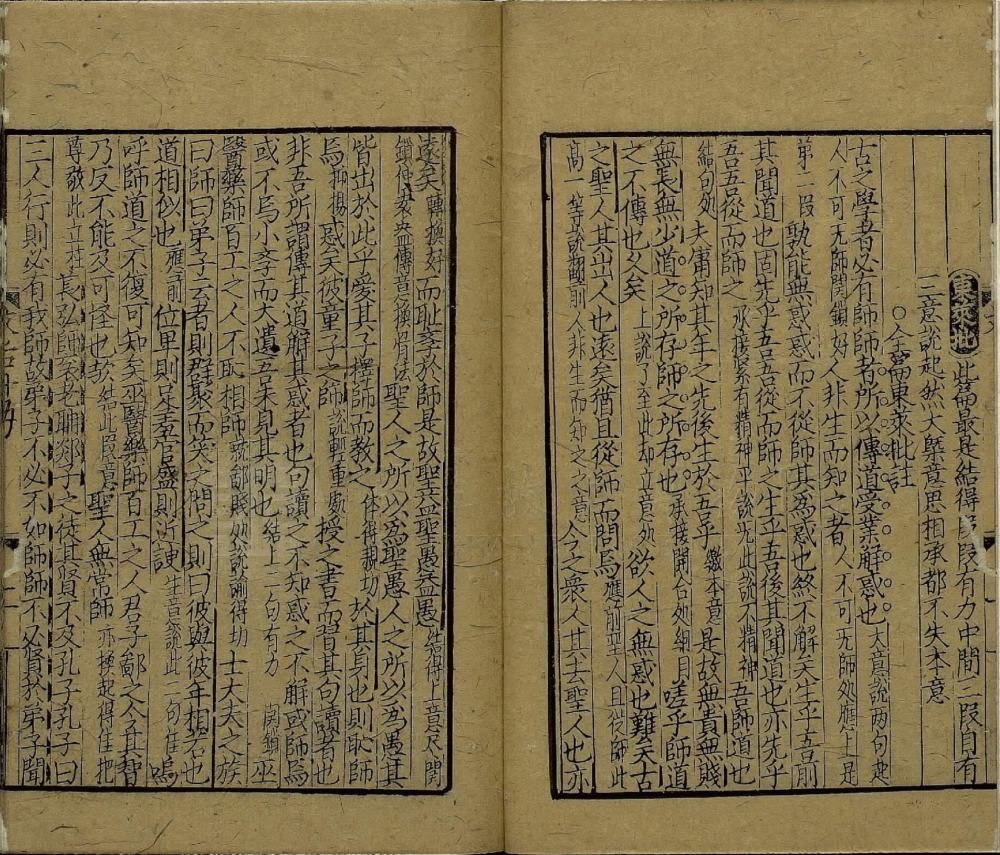 東萊批 此篇最是結得段段有力中間三段自有
三意說起然大槩意思相承都不失本意
○全篇東萊批註
古之學者必有師師者所以傳道受業解惑也大意說兩句起
人不可无師関鎖好人非生而知之者人不可无師処應上是
第二段孰能無惑惑而不從師其爲惑也終不解矣生乎吾前
其聞道也固先乎吾吾從而師之生乎吾後其聞道也亦先乎
吾吾從而師之承接緊有精神平說先此說不精神吾師道也
結句処夫庸知其年之先後生於吾乎繳本意是故無貴無賤
無長無少道之所存師之所存也承接開合処綱目嗟乎師道
之不傳也久矣上說了至此却立意処欲人之無惑也難矣古
之聖人其出人也遠矣猶且從師而問焉應前聖人且從師此
高一等說翻前人非生而知之之意今之衆人其去聖人也亦
遠矣轉換好而耻學於師是故聖益聖愚益愚結得上意尽関
鎖佳聖人之所以爲聖愚人之所以爲愚其
皆出於此乎愛其子擇師而教之体得親切於其身也則恥師
焉抑揚惑矣彼童子之師說輕重処授之書而習其句讀者也
非吾所謂傳其道解其惑者也句讀之不知惑之不解或師焉
或不焉小李而大遺吾未見其明也結上二句有力関鎖巫
醫藥師百工之人不恥相師就鄙賤処說諭得切士大夫之族
曰師曰弟子云者則群聚而笑之問之則曰彼與彼年相若也
道相似也應前位卑則足羞官盛則近諛生意說此二句佳嗚
呼師道之不復可知矣巫醫藥師百工之人君子鄙之今其智
乃反不能及可怪也歟結此段意聖人無常師亦接起得佳把
尊敬此立柱萇弘師襄老聃郯子之徒其賢不及孔子孔子曰
三人行則必有我師故弟子不必不如師師不必賢於弟子聞